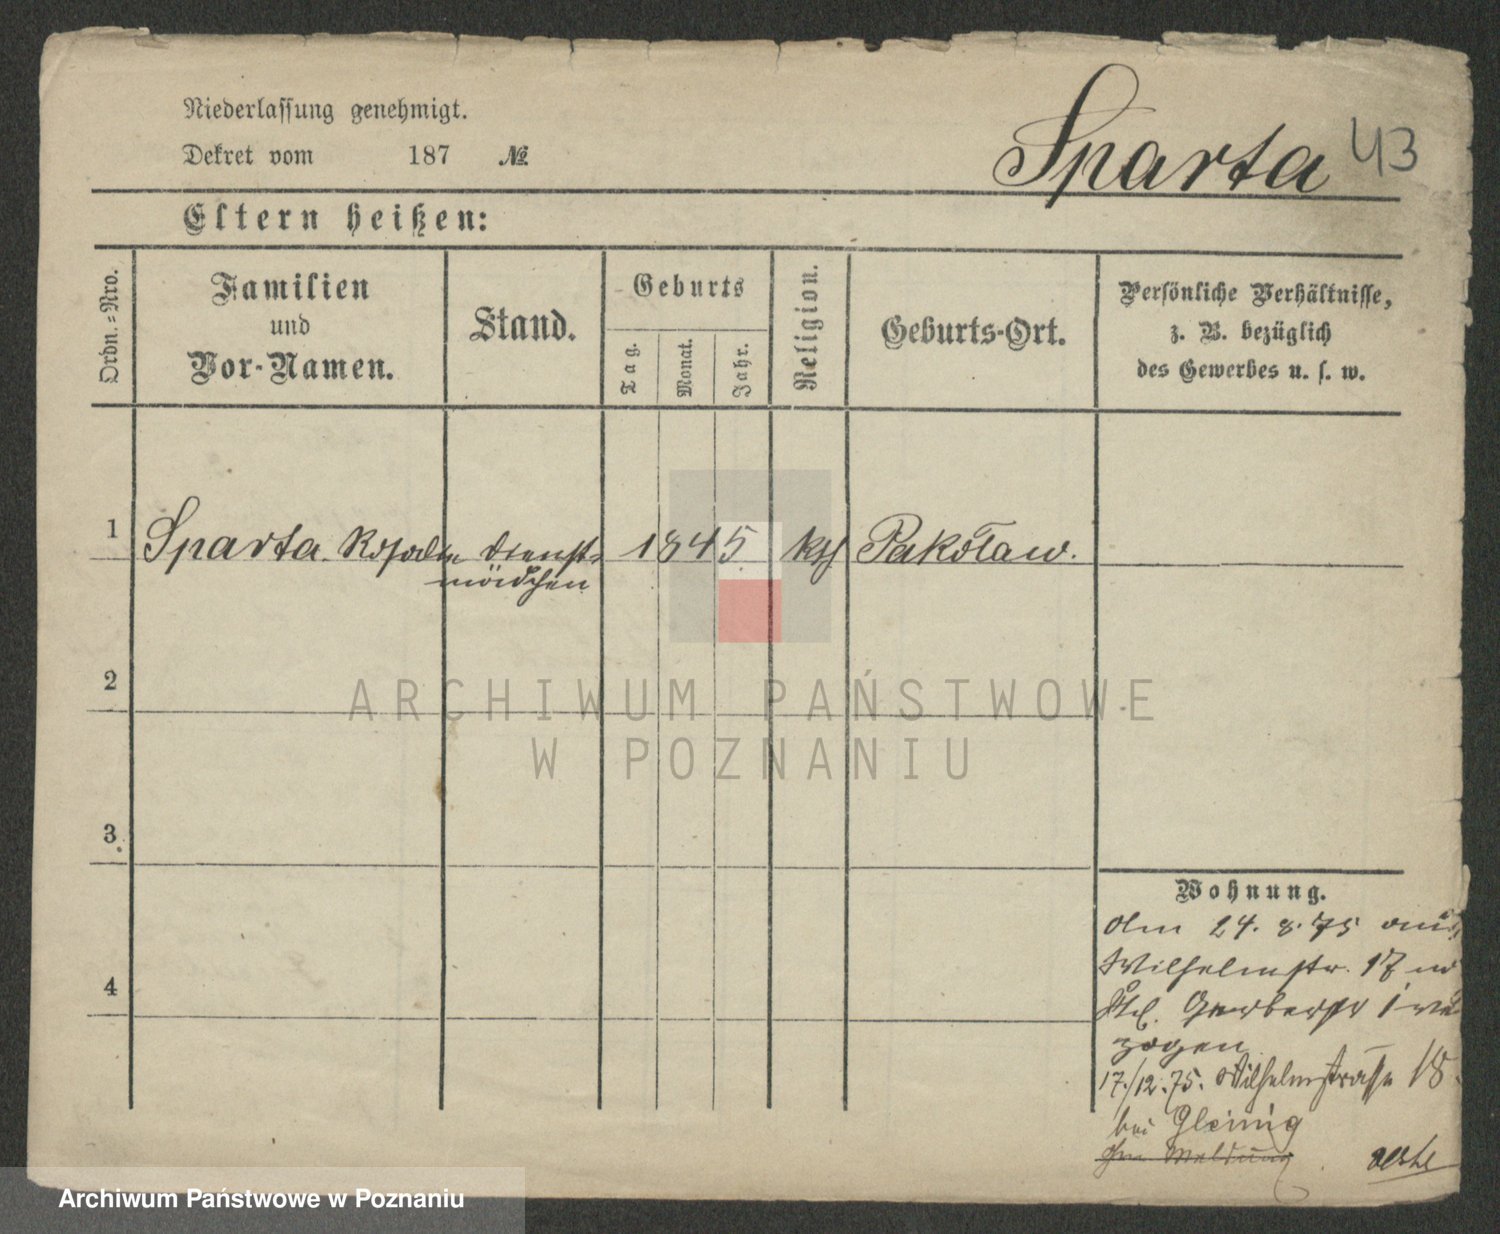 Niederlassung genehmigt.
Dekret vom 187 №
Sparta 43
Eltern heißen:
Ordn.=Nro.
Familien
und
Vor-Namen.
Stand.
Geburts
Tag.
Monat.
Jahr.
Religion.
Geburts-Ort.
Persönliche Verhältnisse,
z. B. bezüglich
des Gewerbes u. s. w.
1 Sparta Rosalie Dienst-
mädchen
1845 kth Pakosław.
2
3.
4
ARCHIWUM PAŃSTWOWE
W POZNANIU
Wohnung.
Am 24. 8. 75 aus
Wilhelmstr. 17 n
Gerberstr 1 ver
zogen
17./12. 75. Wilhelmstraße 18.
bei Gleinig
Meldung
Archiwum Państwowe w Poznaniu